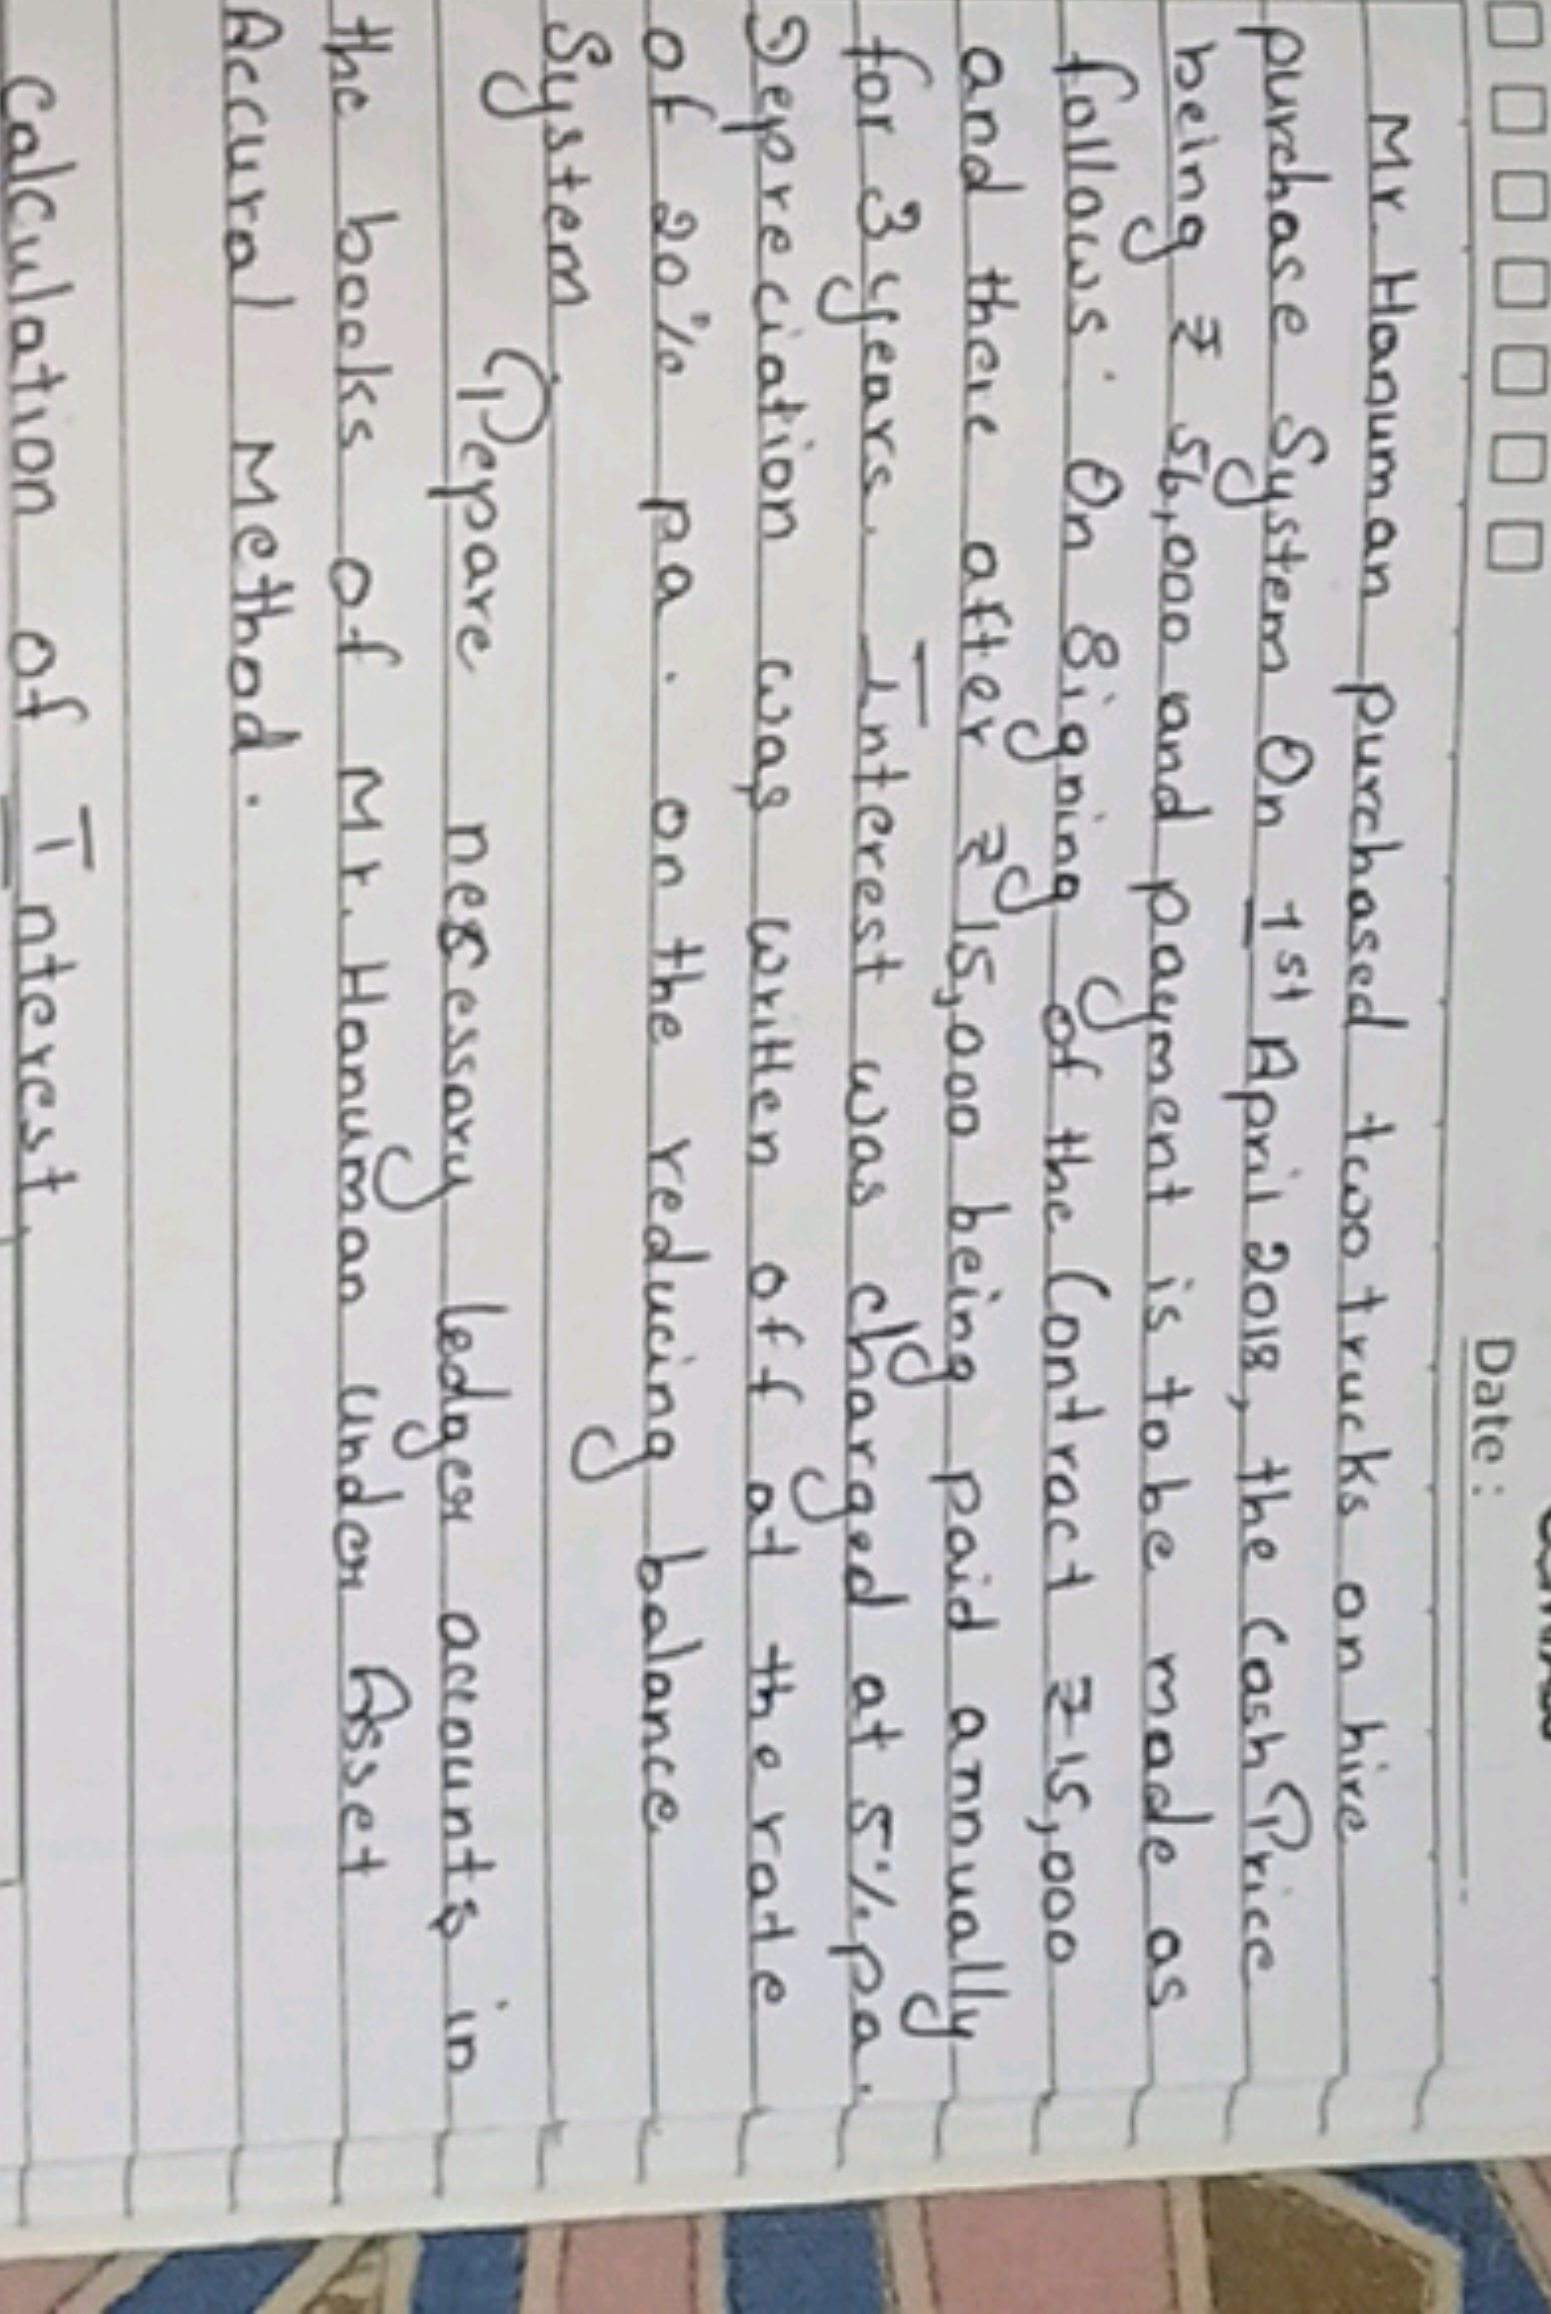 Date :
Mr. Hanuman purchased two trucks on hire
purchase System On 1st April 2018, the Cash Price
being ₹ 56,000 and payment is to be made as
follows. On Signing of the Contract ₹ 15,000
and there after ₹ 15,000 being paid annually
for 3 years. Interest was charged at 5% pa.
Depreciation was written off at the rate
of 20% pa. on the reducing balance
System.
Pepare necessary ledger accounts in
the books of Mr. Hanuman under Asset
Accural Method.
Calculation of Interest